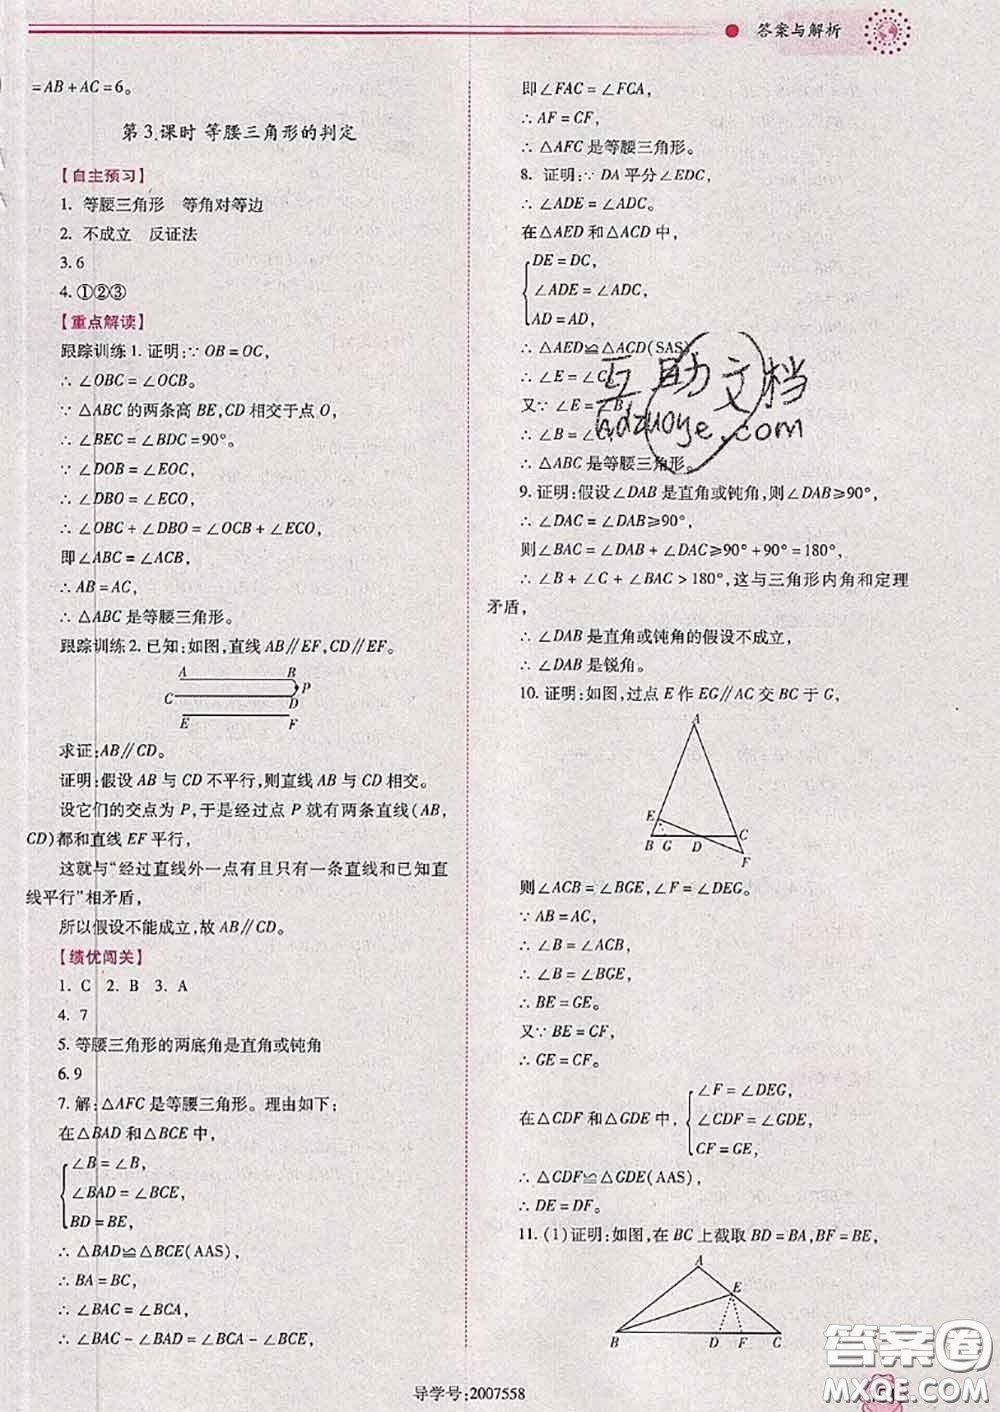 答案与解析
=AB+AC=6。
第3课时 等腰三角形的判定
【自主预习】
1. 等腰三角形 等角对等边
2. 不成立 反证法
3.6
4.①②③
【重点解读】
跟踪训练1.证明:∵OB=OC,
∴∠OBC=∠OCB。
∵△ABC的两条高BE,CD相交于点O,
∴∠BEC=∠BDC=90°。
∵∠DOB=∠EOC,
∴∠DBO=∠ECO,
∴∠OBC+∠DBO=∠OCB+∠ECO,
即∠ABC=∠ACB,
∴AB=AC,
∴△ABC是等腰三角形。
跟踪训练2.已知:如图,直线AB∥EF,CD∥EF。
A B
P
C D
E F
求证:AB∥CD。
证明:假设AB与CD不平行,则直线AB与CD相交。
设它们的交点为P,于是经过点P就有两条直线(AB,
CD)都和直线EF平行,
这就与“经过直线外一点有且只有一条直线和已知直
线平行”相矛盾,
所以假设不能成立,故AB∥CD。
【绩优闯关】
1. C 2. B 3. A
4. 7
5. 等腰三角形的两底角是直角或钝角
6.9
7. 解:△AFC是等腰三角形。理由如下:
在△BAD和△BCE中,
∠B=∠B,
∠BAD=∠BCE,
BD=BE,
∴△BAD≌△BCE(AAS),
∴BA=BC,
∴∠BAC=∠BCA,
∴∠BAC-∠BAD=∠BCA-∠BCE,
即∠FAC=∠FCA,
∴AF=CF,
∴△AFC是等腰三角形。
8. 证明:∵DA平分∠EDC,
∴∠ADE=∠ADC。
在△AED和△ACD中,
DE=DC,
∠ADE=∠ADC,
AD=AD,
∴△AED≌△ACD(SAS)
∴∠E=∠C
又∵∠E=∠B
∴∠B=∠C,
∴△ABC是等腰三角形。
9.证明:假设∠DAB是直角或钝角,则∠DAB≥90°,
∴∠DAC=∠DAB≥90°,
则∠BAC=∠DAB+∠DAC≥90°+90°=180°,
∴∠B+∠C+∠BAC>180°,这与三角形内角和定理
矛盾,
∴∠DAB是直角或钝角的假设不成立,
∴∠DAB是锐角。
10. 证明:如图,过点E作EG∥AC交BC于G,
A
E
B G D C
F
则∠ACB=∠BGE,∠F=∠DEG。
∵AB=AC,
∴∠B=∠ACB,
∴∠B=∠BGE,
∴BE=GE。
又∵BE=CF,
∴GE=CF。
∠F=∠DEG,
在△CDF和△GDE中, ∠CDF=∠GDE,
CF=GE,
∴△CDF≌△GDE(AAS),
∴DE=DF。
11. (1)证明:如图,在BC上截取BD=BA,BF=BE,
A
E
B D F C
导学号:2007558
互助文档
hdzuoye.com
答案圈
MXQE.COM